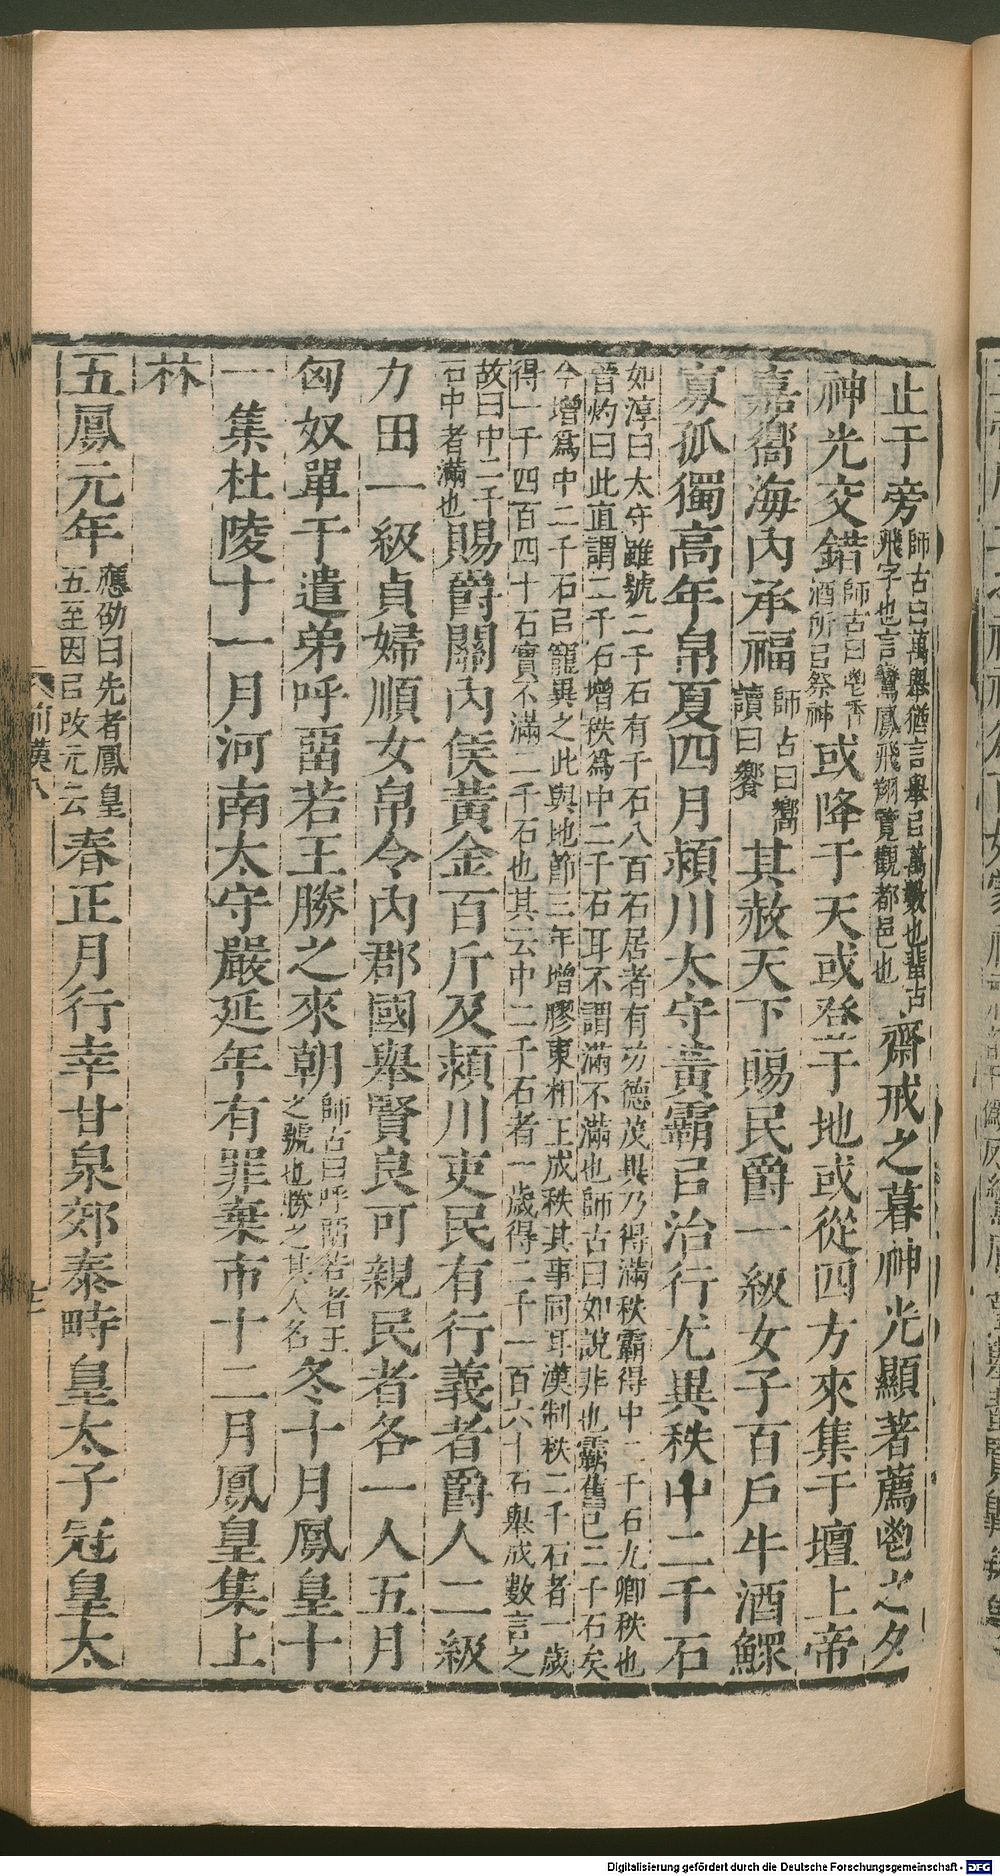 止于旁師古曰萬舉猶言舉㠯萬數也蜚古飛字也言鸞鳳飛翔覽觀都邑也齋戒之暮神光顯著薦鬯之夕
神光交錯師古曰鬯香酒所㠯祭神或降于天或登于地或從四方來集于壇上帝
嘉嚮海內承福師古曰嚮讀曰饗其赦天下賜民爵一級女子百戶牛酒鰥
寡孤獨高年帛夏四月潁川太守黃霸㠯治行尤異秩中二千石
如淳曰太守雖號二千石有千石八百石居者有功德茂異乃得滿秩霸得中二千石九卿秩也
晉灼曰此直謂二千石增秩為中二千石耳不謂滿不滿也師古曰如說非也霸舊已二千石矣
今增為中二千石㠯寵異之此與地節三年增膠東相王成秩其事同耳漢制秩二千石者一歲
得一千四百四十石實不滿二千石也其云中二千石者一歲得二千一百六十石舉成數言之
故曰中二千石中者滿也賜爵關內侯黃金百斤及潁川吏民有行義者爵人二級
力田一級貞婦順女帛令內郡國舉賢良可親民者各一人五月
匈奴單于遣弟呼留若王勝之來朝師古曰呼留若者王之號也勝之其人名冬十月鳳皇十
一集杜陵十一月河南太守嚴延年有罪棄市十二月鳳皇集上
林
五鳳元年應劭曰先者鳳皇五至因㠯改元云春正月行幸甘泉郊泰畤皇太子冠皇太
前漢八
Digitalisierung gefördert durch die Deutsche Forschungsgemeinschaft - DFG